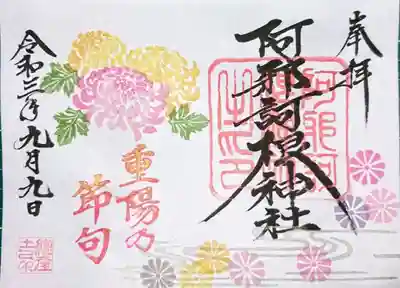 奉拝
阿邪訶根神社
重陽の
節句
令和三年九月九日